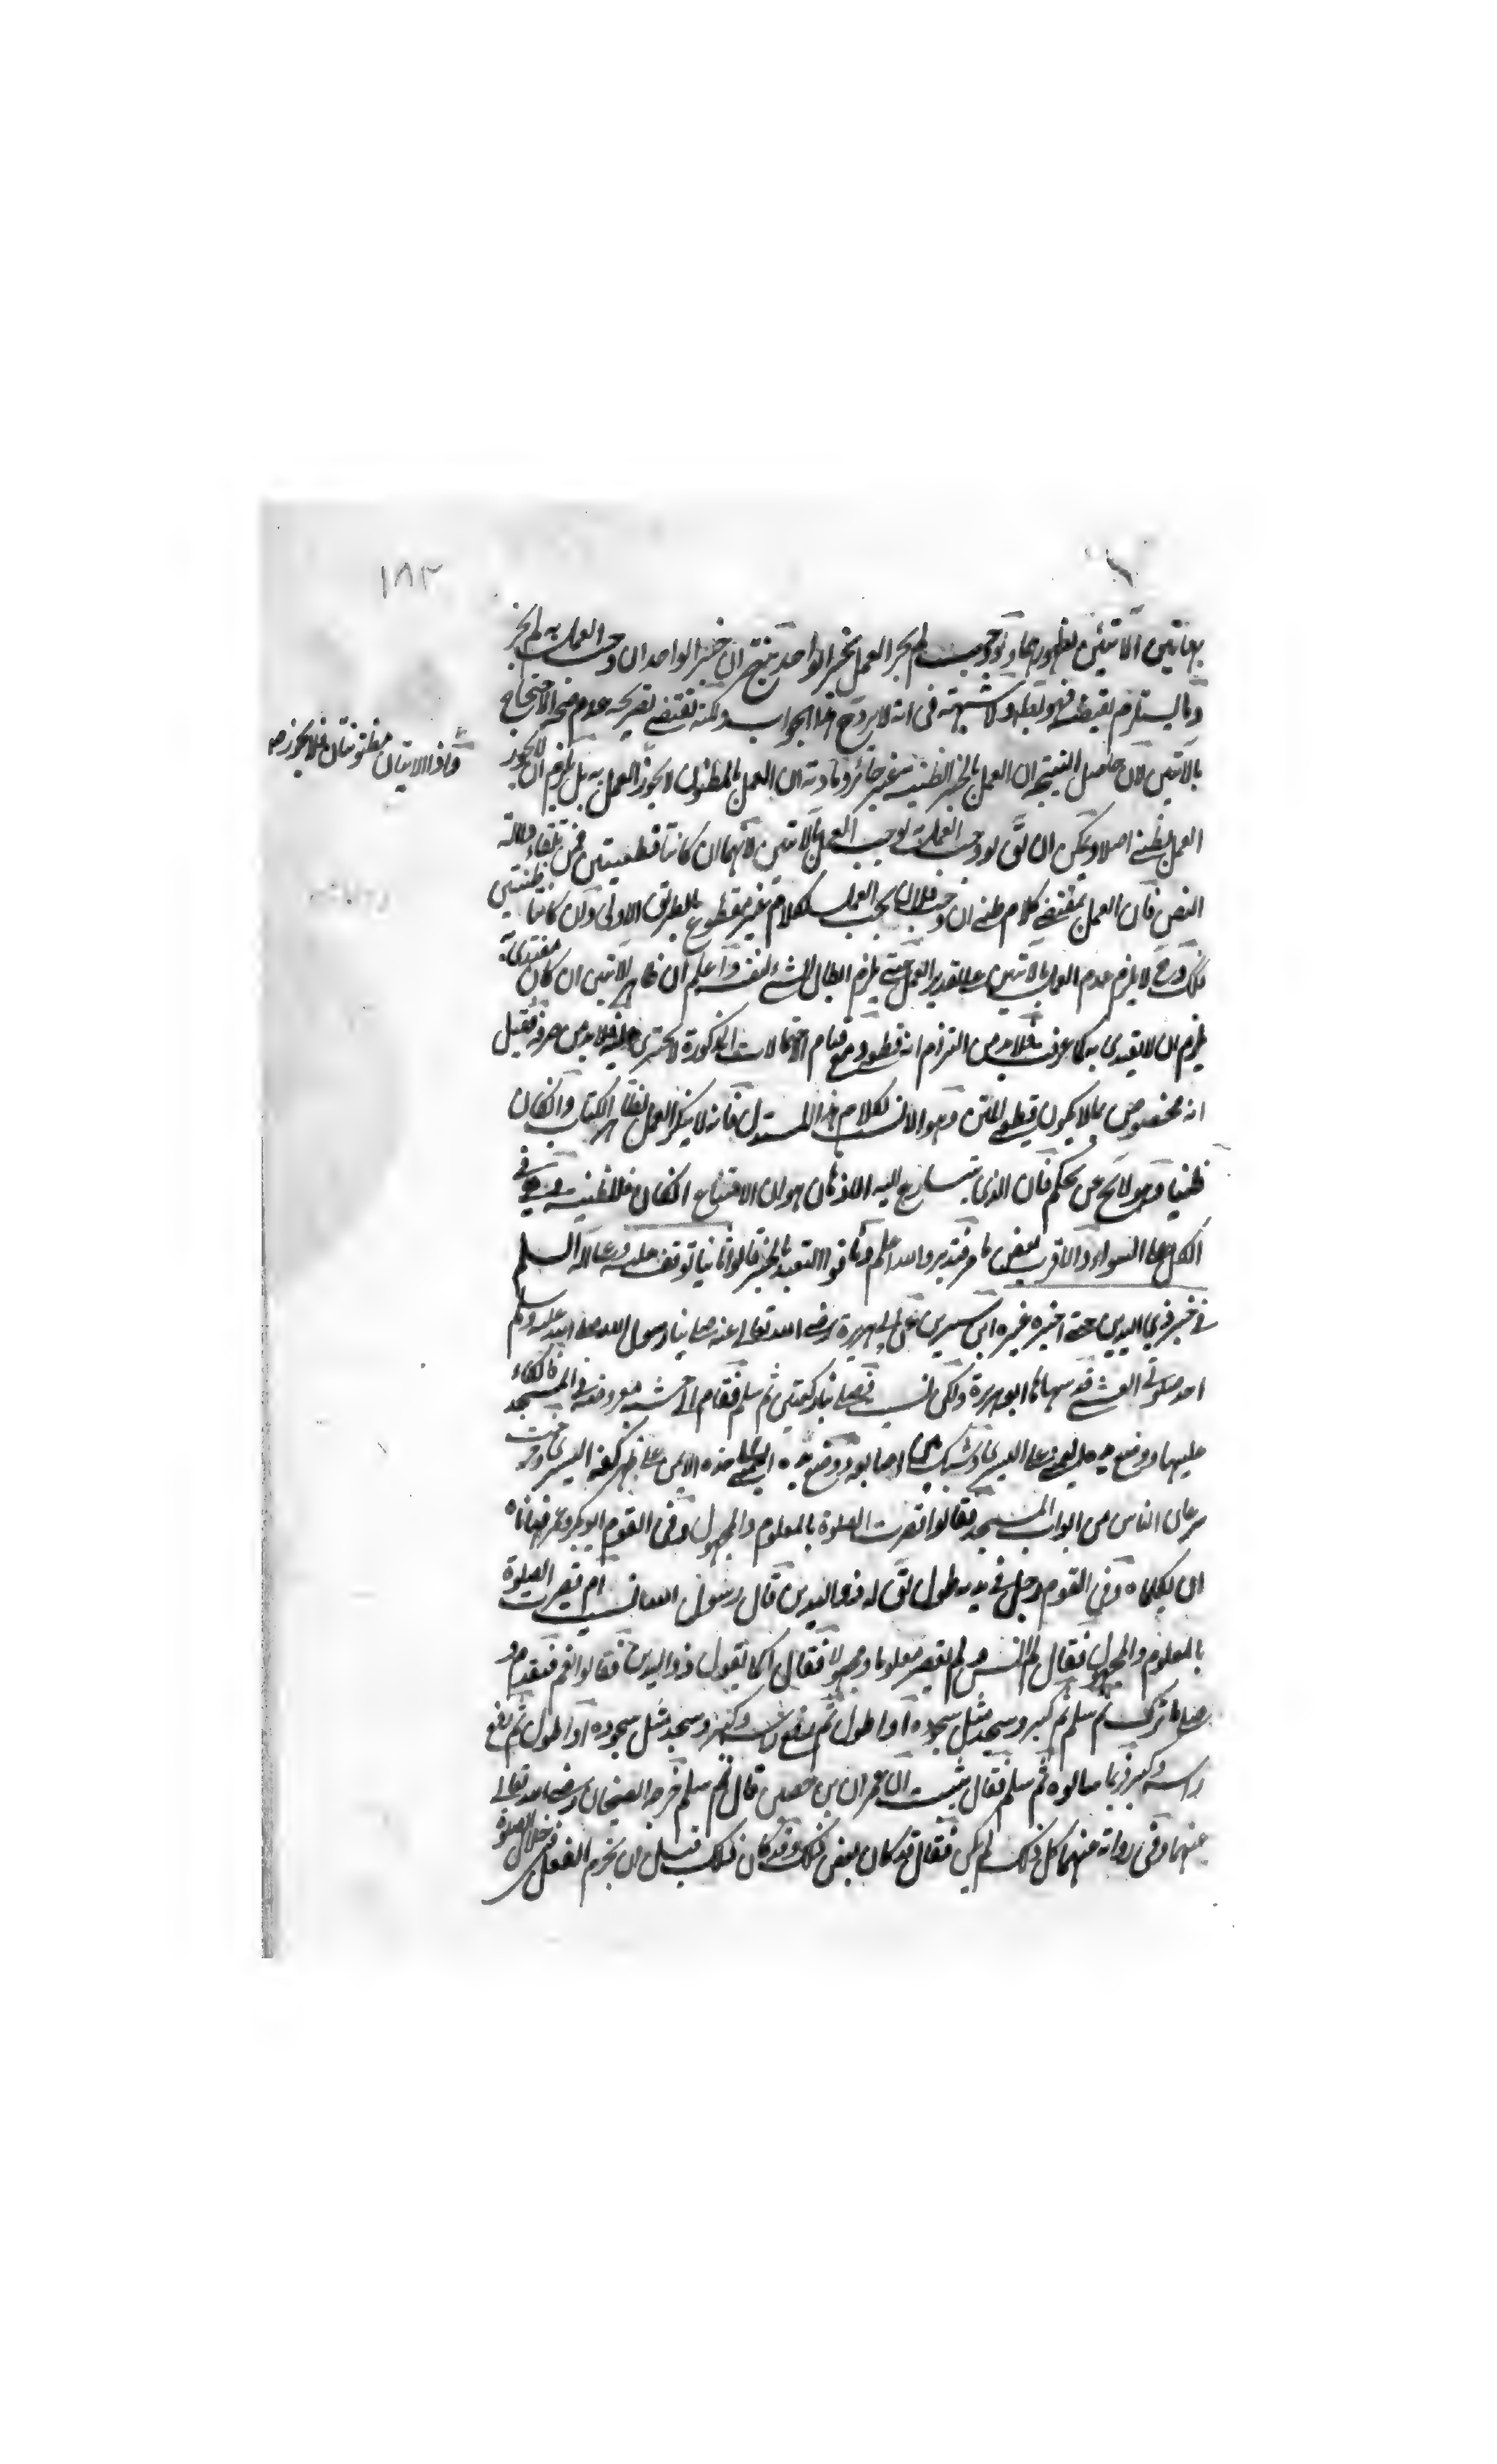 ١٨٢
بهاتين الآيتين لظهورهما ولو وجب لم يجز العمل بخبر الواحد ينتج ان خبر الواحد ان وجب العمل به لم يجز
وما يستلزم نقيضه فهو باطل ولا شبهة في انه لا يرد ح هذا الجواب ولكنه يقتضي تقريره عدم صحة الاحتجاج
بالآيتين لان حاصل النتيجة ان العمل بالخبر الظني غير جائز ومادته ان العمل بالمظنون لا يجوز العمل به بل يلزم ان لا يجوز
واذا الايتان مظنونتان فلا يجوز
العمل بظني اصلا ويمكن ان يق لو وجب العمل لوجب العمل بالآيتين لانهما ان كانتا قطعيتين فمن تلقاء دلالة
النص فان العمل بمقتضى كلام ظني ان وجب فلان يجب العمل بكلام غير مقطوع بالطريق الاولى وان كانتا ظنيتين
فذلك وح لا يلزم عدم العمل بالآيتين على تقدير العمل حتى يلزم ابطال الشئ لنفسه واعلم ان ظاهر الآيتين ان كان مفيدا
يلزم ان لا يقيد به كما عرفت فلا بد من التزام انه قطعي ومع قيام الاحتمالات المذكورة لا يجترى عليه فلا بد من صرفه فقيل
انه مخصوص بما لا يكون قطعي المتن وهو الانسب لكلام هذا المستدل فانه لا ينكر العمل بظاهر الكتاب وان كان
ظنيا وهو لا يخ عن تحكم فان الذي يتسارع اليه الاذهان هو ان الامتناع ان كان فللظنية وهي في
الكل على السواء والاقرب بعض ما مر فتدبر والله اعلم وما قوا التعبد بالخبر قالوا ثانيا توقف عليه وعلى آله السلم
في خبر ذي اليدين حتى اخبره غيره ابن سيرين عن ابي هريرة رضي الله تعالى عنه صلى بنا رسول الله صلى الله عليه وسلم
احد صلوتي العشي قد سماها ابو هريرة ولكن نسيت فصلى بنا ركعتين ثم سلم فقام الى خشبة معروضة في المسجد فاتكاء
عليها ووضع يده اليمنى على اليسرى وشبك بين اصابعه ووضع خده الايمن على ظهر كفه اليسرى وخرجت
سرعان الناس من ابواب المسجد فقالوا قصرت الصلوة بالمعلوم والمجهول وفي القوم ابو بكر وعمر فهاباه
ان يكلماه وفي القوم رجل في يديه طول يق له ذو اليدين قال رسول الله انسيت ام قصرت الصلوة
بالمعلوم والمجهول فقال لم انس ولم تقصر معلوما ومجهولا فقال اكما يقول ذو اليدين فقالوا نعم فتقدم و
صلى ما ترك ثم سلم ثم كبر وسجد مثل سجوده او اطول ثم رفع راسه وكبر وسجد مثل سجوده او اطول ثم رفع
راسه وكبر فربما سالوه ثم سلم فقال نبئت ان عمران بن حصين قال ثم سلم اخرجه الشيخان رضي الله تعالى
عنهما وفي رواية عنهما كل ذلك لم يكن فقال قد كان بعض ذلك وقد كان ذلك قبل ان يحرم الفعل في خلال الصلوة